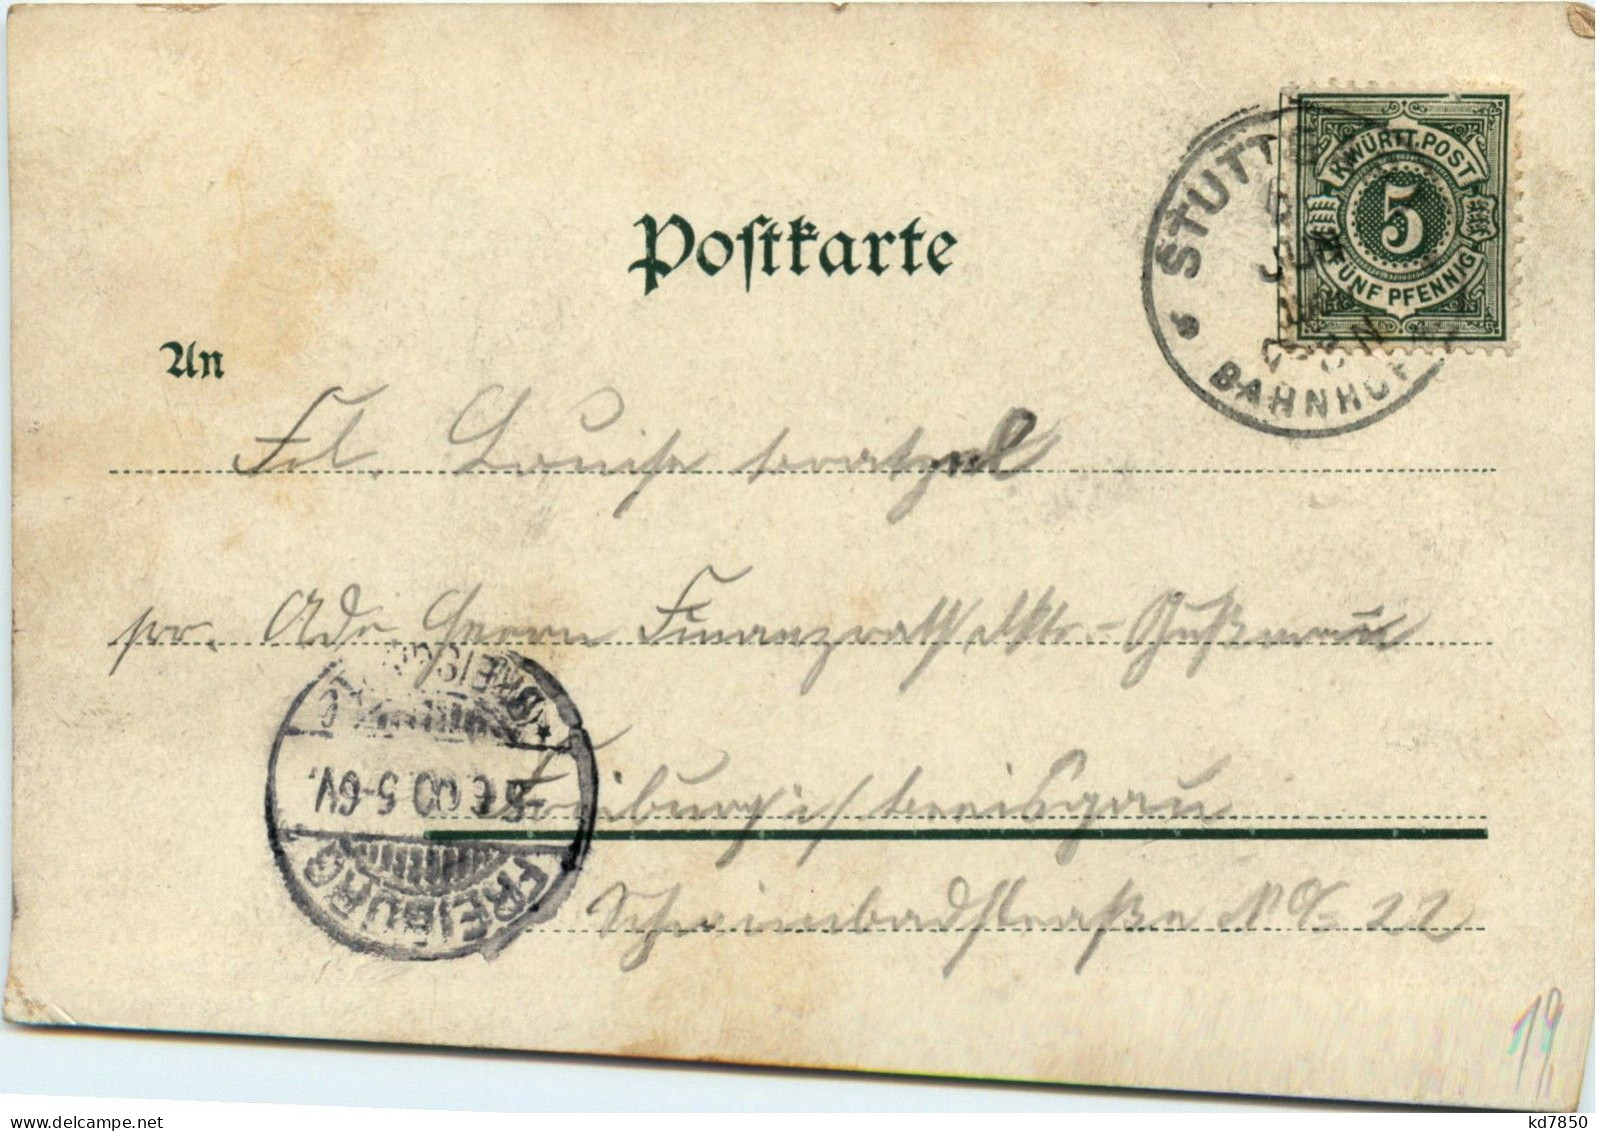 Postkarte
K.WÜRTT.POST
5
FÜNF PFENNIG
STUTTG
JUN
BAHNHOF
An
Frl. Louise
pr. Adr. Herrn Finanzrath
Freiburg i/ breisgau
Schwimbadstraße No 22
BREISGAU
8.6.00.5-6V.
FREIBURG
19
kd7850